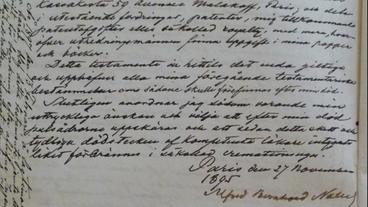 Kassakista 59 Avenue Malakoff, Paris; och dels
i utestående fordringar, patenter, mig tillkommande
patentafgifter eller så kallad royalty, med mera, hvar
öfver utredningsmännen finna uppgift i mina papper
och böcker.
Detta testamente är hittills det enda giltiga
och upphäfver alla mina föregående testamentariska
bestämmelser om sådane skulle förefinnas efter min död.
Slutligen anordnar jag såsom varande min
uttryckliga önskan och vilja att efter min död
pulsådrorna uppskäras och att sedan detta skett och
tydliga dödstecken af kompetenta läkare intygats
liket förbrännes i så kallad cremationsugn.
Paris den 27 November
1895
Alfred Bernhard Nobel